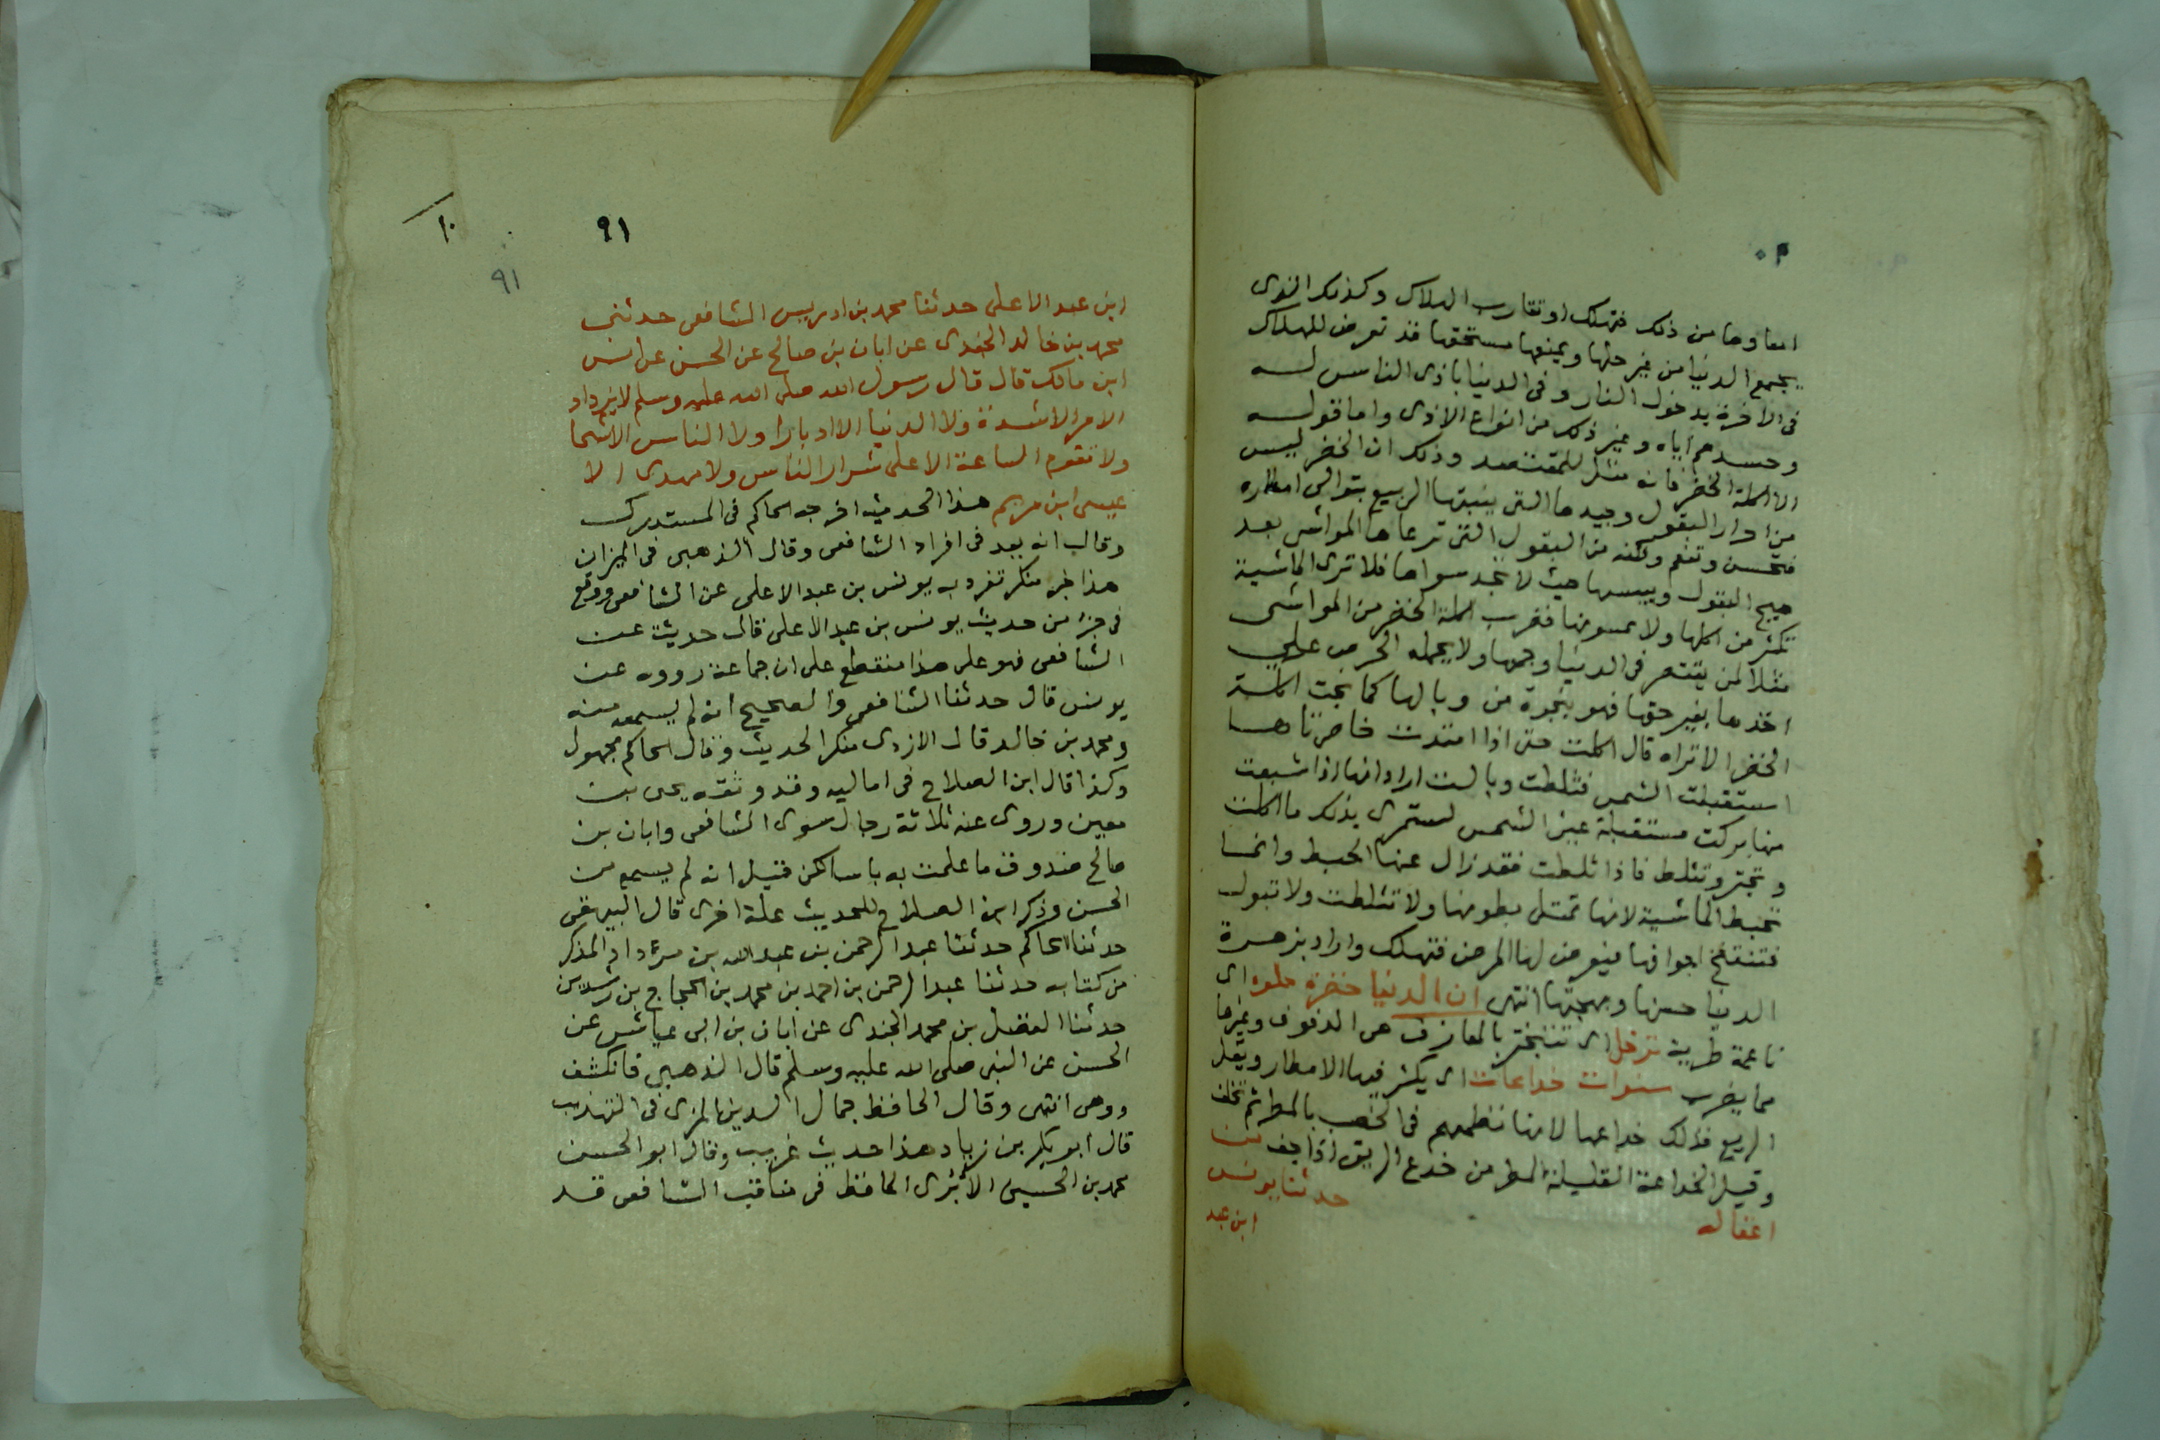 ٩٠
امعاوها من ذلك فتهلك او تقارب الهلاك وكذلك الذى
يجمع الدنيا من غير حلها ويمنعها مستحقها قد تعرض للهلاك
فى الاخرة بدخول النار وفى الدنيا باذى الناس له
وحسدهم اياه وغير ذلك من انواع الاذى واما قوله
الا اكلة الخضر فانه مثل للمقتصد وذلك ان الخضر ليس
من احرار البقول وجيدها التى ينبتها الربيع بتوالى امطاره
فتحسن وتنعم ولكنه من البقول التى ترعاها المواشى بعد
هيج البقول ويبسها حيث لا تجد سواها فلا ترى الماشية
تكثر من اكلها ولا تستمريها فضرب اكلة الخضر من المواشى
مثلا لمن يقتصر فى الدنيا وجمعها ولا يحمله الحرص على
اخذها بغير حقها فهو بنجوة من وبالها كما نجت اكلة
الخضر الا تراه قال اكلت حتى اذا امتدت خاصرتاها
استقبلت الشمس فثلطت وبالت اراد انها اذا شبعت
منها بركت مستقبلة عين الشمس لتستمرى بذلك ما اكلت
وتجتر وتثلط فاذا ثلطت فقد زال عنها الحبط وانما
تحبط الماشية لانها تمتلى بطونها ولا تثلط ولا تبول
فتنتفخ اجوافها فيعرض لها المرض فتهلك واراد بزهرة
الدنيا حسنها وبهجتها انتهى ان الدنيا خضرة حلوة اى
ناعمة طرية ترفل اى تتبختر بالمعازف هى الدفوف وغيرها
مما يضرب سنوات خداعات اى يكثر فيها الامطار ويقل
الريع فذلك خداعها لانها تطمعهم فى الخصب بالمطر ثم تخلف
وقيل الخداعة القليلة المطر من خدع الريق اذا جف من
اعفاله حدثنا يونس
ابن عبد
٩١
١٠
٩١
ابن عبد الاعلى حدثنا محمد بن ادريس الشافعى حدثنى
محمد بن خالد الجندى عن ابان بن صالح عن الحسن عن انس
ابن مالك قال قال رسول الله صلى الله عليه وسلم لا يزداد
الامر الا شدة ولا الدنيا الا ادبارا ولا الناس الا شحا
ولا تقوم الساعة الا على شرار الناس ولا مهدى الا
عيسى ابن مريم هذا الحديث اخرجه الحاكم فى المستدرك
وقال انه يعد فى افراد الشافعى وقال الذهبى فى الميزان
هذا خبر منكر تفرد به يونس بن عبد الاعلى عن الشافعى ووقع
فى جزء من حديث يونس بن عبد الاعلى قال حديث عن
الشافعى فهو على هذا منقطع على ان جماعة رووه عن
يونس قال حدثنا الشافعى والصحيح انه لم يسمعه منه
ومحمد بن خالد قال الازدى منكر الحديث وقال الحاكم مجهول
وكذا قال ابن الصلاح فى اماليه وقد وثقه يحى بن
معين وروى عنه ثلاثة رجال سوى الشافعى وابان بن
صالح صدوق ما علمت به باسا لكن قيل انه لم يسمع من
الحسن وذكر ابن الصلاح للحديث علة اخرى قال البيهقى
حدثنا الحاكم حدثنا عبد الرحمن بن عبد الله بن يزداد المذكر
من كتابه حدثنا عبد الرحمن بن احمد بن محمد بن الحجاج بن رشدين
حدثنا المفضل بن محمد الجندى عن ابان بن ابى عياش عن
الحسن عن النبى صلى الله عليه وسلم قال الذهبى فانكشف
ووهى انتهى وقال الحافظ جمال الدين المزى فى التهذيب
قال ابو بكر بن زياد هذا حديث غريب وقال ابو الحسن
محمد بن الحسين الابرى الحافظ فى مناقب الشافعى قد